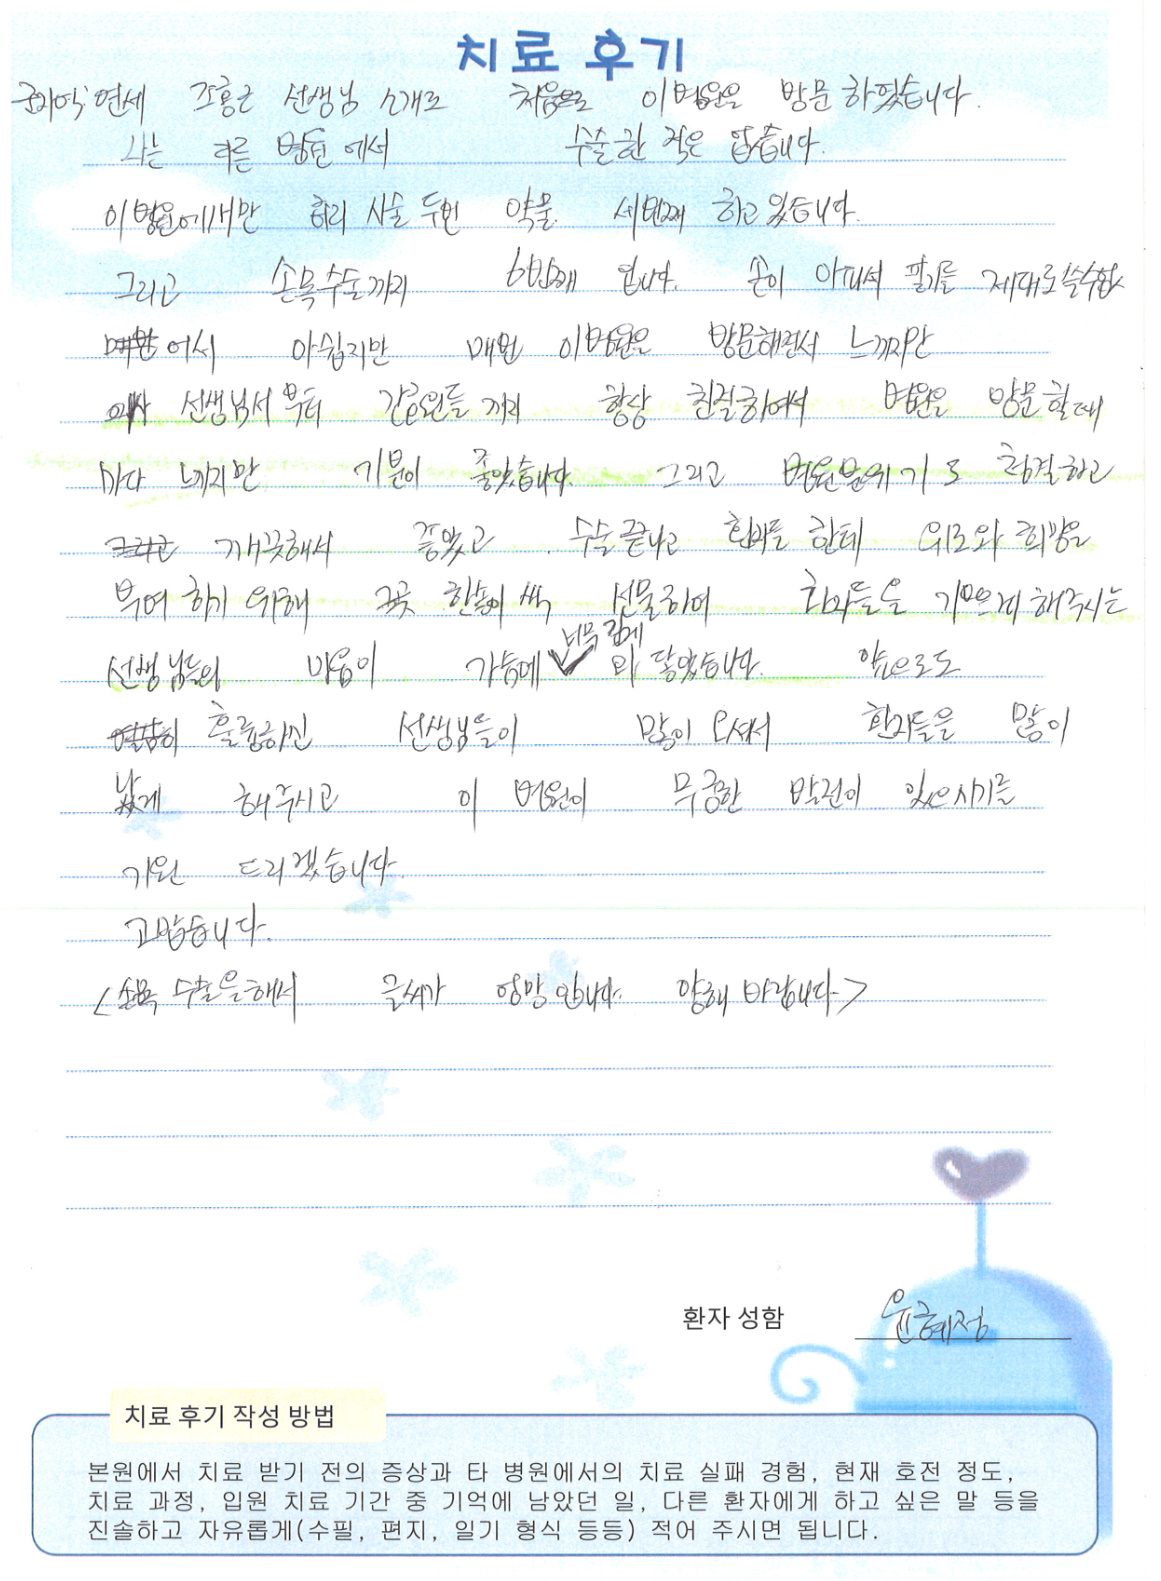 치료 후기
연세 조홍근 선생님 소개로 처음으로 이 병원을 방문 하였습니다.
나는 다른 병원에서 수술한 적은 없습니다.
이 병원에서만 허리 시술 두번 약물 세번째 하고 있습니다.
그리고 손목수술까지 6번째 입니다. 손이 아파서 필기를 제대로 쓸수가
없어서 아쉽지만 매번 이병원을 방문하면서 느끼지만
의사 선생님서부터 간호원들 까지 항상 친절하여서 병원을 방문 할때
마다 느끼지만 기분이 좋았습니다. 그리고 병원분위기도 청결하고
깨끗해서 좋았고. 수술 끝나고 환자들 한테 위로와 희망을
부여 하기 위해 꽃 한송이 씩 선물하여 환자들을 기쁘게 해주시는
선생님들의 마음이 가슴에 너무 깊게 와 닿았습니다. 앞으로도
훌륭하신 선생님들이 많이 오셔서 환자들을 많이
낫게 해주시고 이 병원이 무궁한 발전이 있으시기를
기원 드리겠습니다.
고맙습니다.
<손목 수술을해서 글씨가 엉망입니다. 양해 바랍니다>
환자 성함 윤혜정
치료 후기 작성 방법
본원에서 치료 받기 전의 증상과 타 병원에서의 치료 실패 경험, 현재 호전 정도,
치료 과정, 입원 치료 기간 중 기억에 남았던 일, 다른 환자에게 하고 싶은 말 등을
진솔하고 자유롭게(수필, 편지, 일기 형식 등등) 적어 주시면 됩니다.